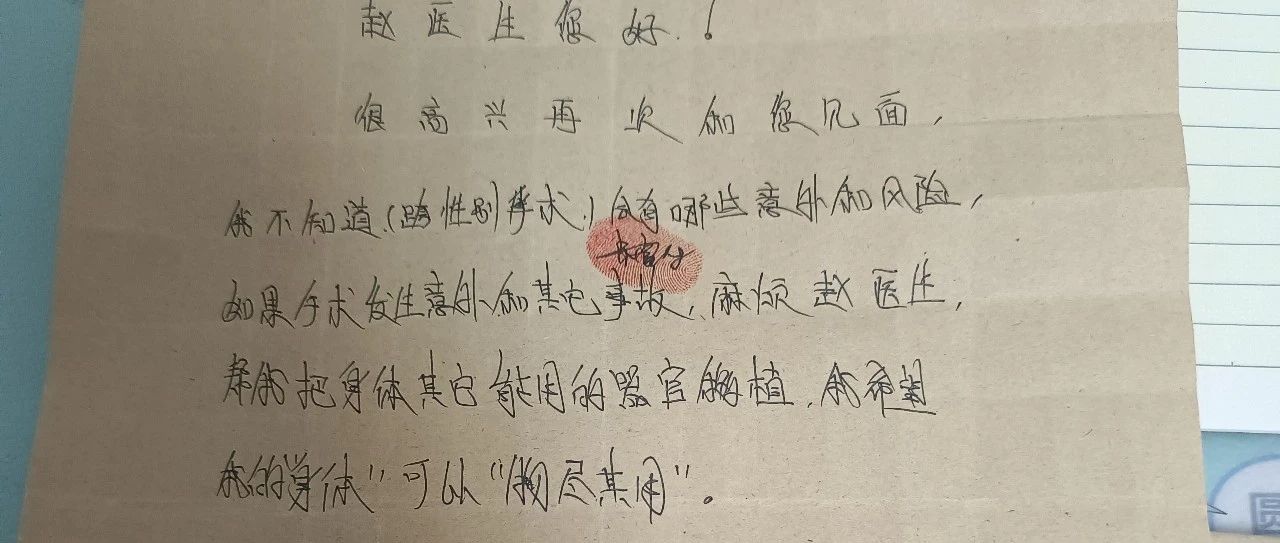 赵医生您好！
很高兴再次和您见面，
我不知道（跨性别手术）会有哪些意外和风险，
如果手术发生意外和其它事故，麻烦赵医生，
帮我把身体其它能用的器官移植，我希望
我的"身体"可以"物尽其用"。
圆